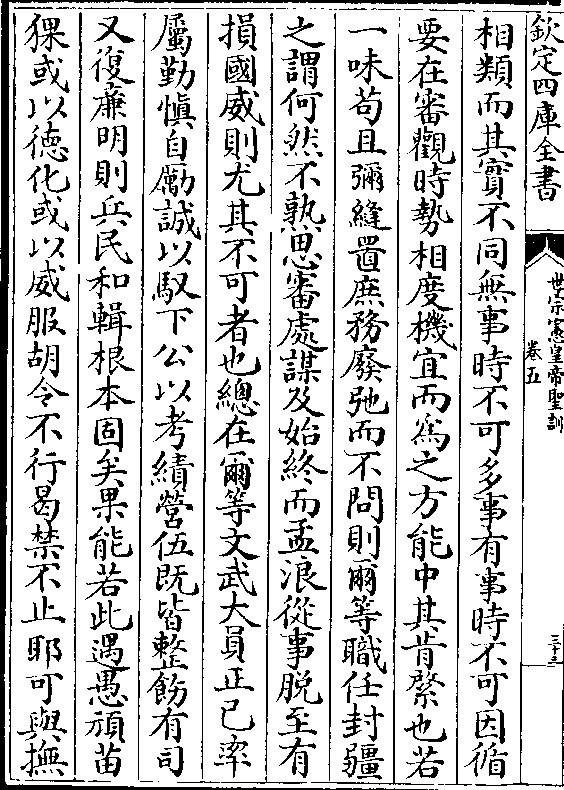 欽定四庫全書
世宗憲皇帝聖訓
卷五
三十三
相類而其實不同無事時不可多事有事時不可因循
要在審觀時勢相度機宜而為之方能中其肯綮也若
一味苟且彌縫置庶務廢弛而不問則爾等職任封疆
之謂何然不熟思審處謀及始終而孟浪從事脱至有
損國威則尤其不可者也總在爾等文武大員正已率
屬勤慎自勵誠以馭下公以考績營伍既皆整飭有司
又復廉明則兵民和輯根本固矣果能若此遇愚頑苗
猓或以徳化或以威服胡令不行曷禁不止耶可與撫